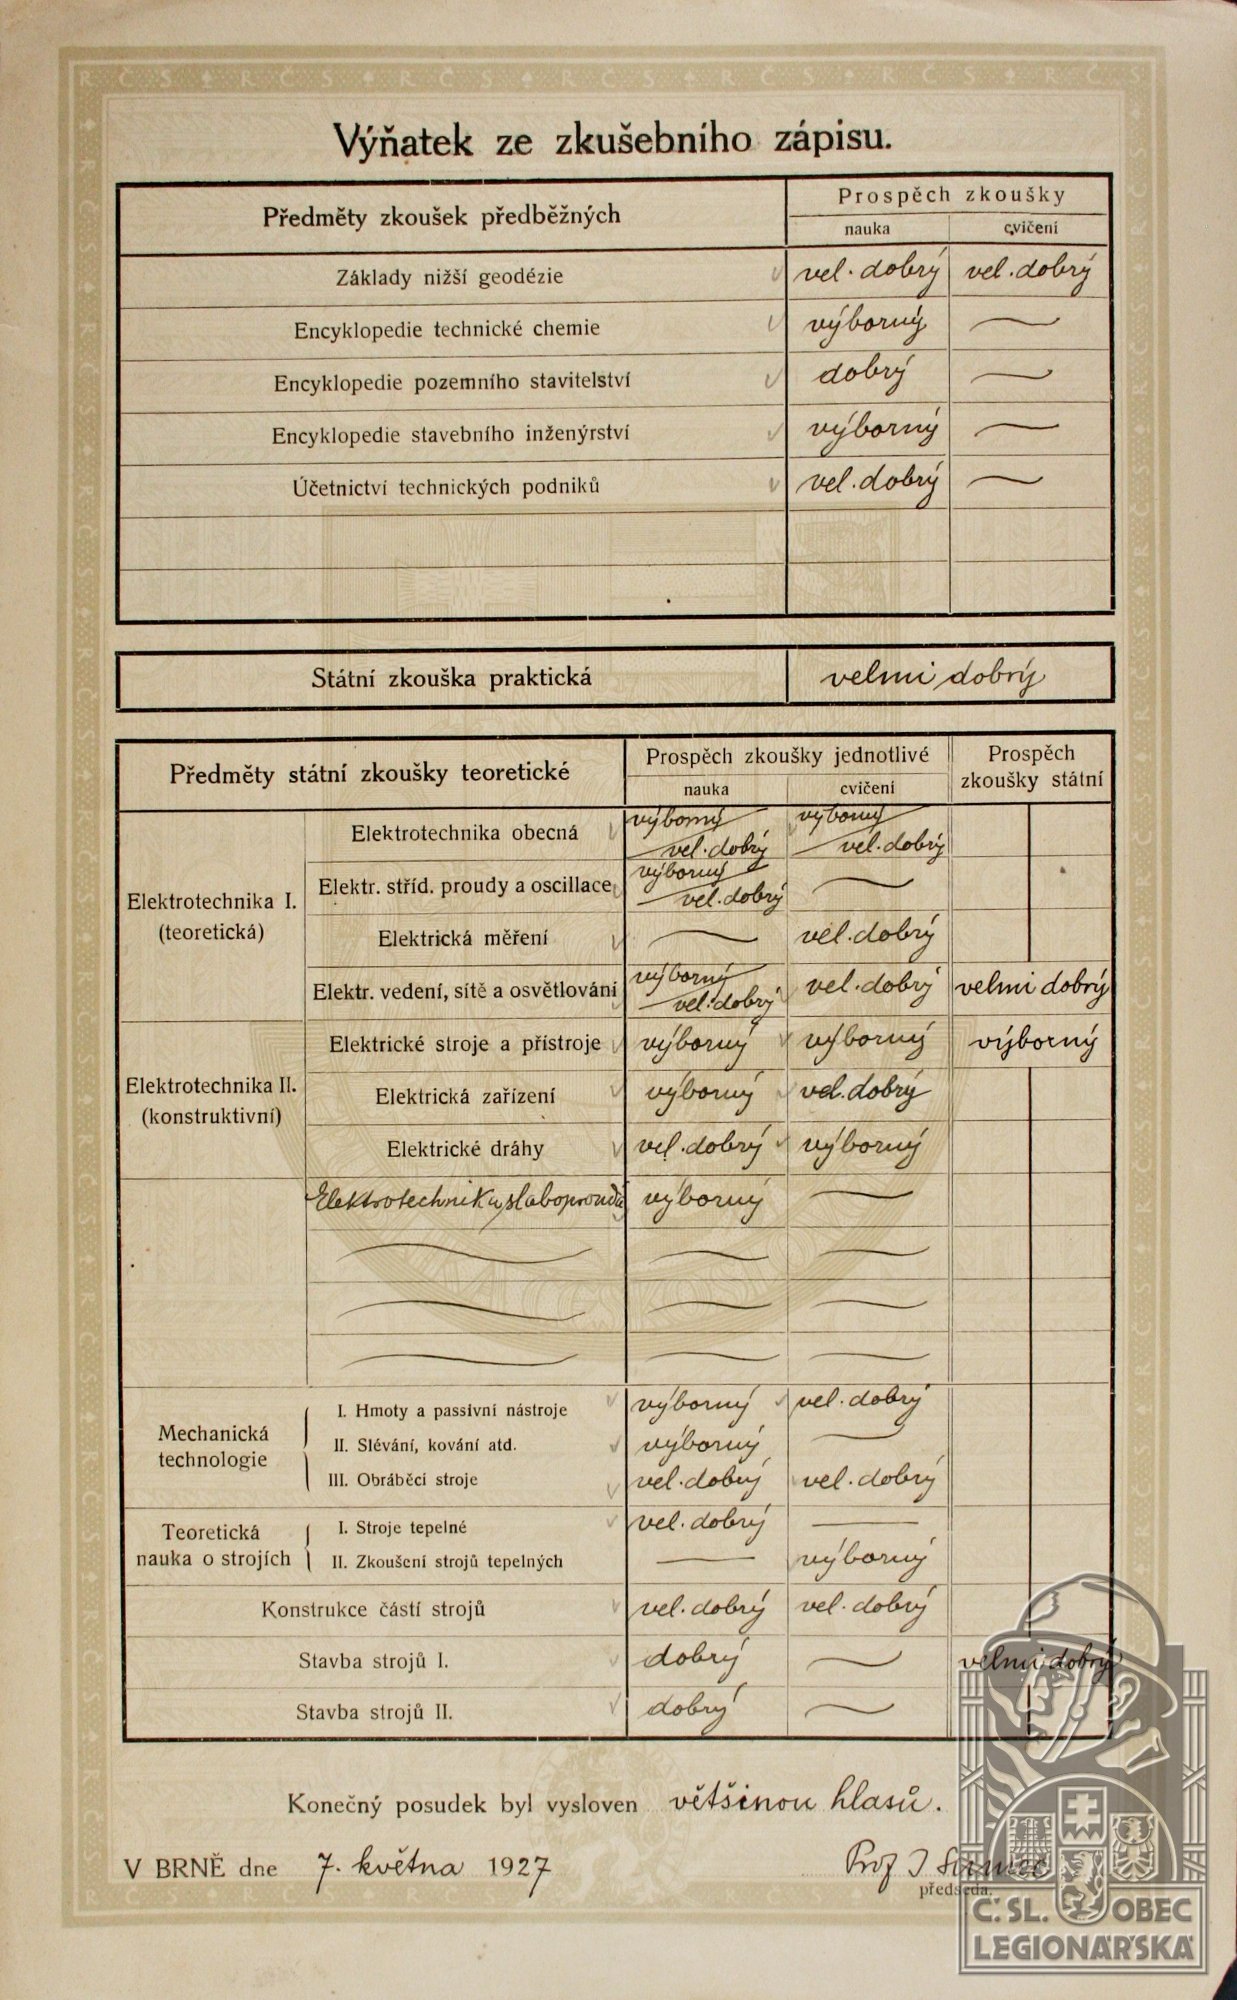 RČS RČS RČS RČS RČS RČS RČS
Výňatek ze zkušebního zápisu.
Předměty zkoušek předběžných
Prospěch zkoušky
nauka cvičení
Základy nižší geodézie vel. dobrý vel. dobrý
Encyklopedie technické chemie výborný
Encyklopedie pozemního stavitelství dobrý
Encyklopedie stavebního inženýrství výborný
Účetnictví technických podniků vel. dobrý
Státní zkouška praktická velmi dobrý
Předměty státní zkoušky teoretické
Prospěch zkoušky jednotlivé
nauka cvičení
Prospěch
zkoušky státní
Elektrotechnika I.
(teoretická)
Elektrotechnika obecná výborný vel. dobrý výborný vel. dobrý
Elektr. stříd. proudy a oscillace výborný vel. dobrý
Elektrická měření vel. dobrý
Elektr. vedení, sítě a osvětlování výborný vel. dobrý vel. dobrý velmi dobrý
Elektrotechnika II.
(konstruktivní)
Elektrické stroje a přístroje výborný výborný výborný
Elektrická zařízení výborný vel. dobrý
Elektrické dráhy vel. dobrý výborný
Elektrotechnika slaboproudá výborný
Mechanická
technologie
I. Hmoty a passivní nástroje výborný vel. dobrý
II. Slévání, kování atd. výborný
III. Obráběcí stroje vel. dobrý vel. dobrý
Teoretická
nauka o strojích
I. Stroje tepelné vel. dobrý
II. Zkoušení strojů tepelných výborný
Konstrukce částí strojů vel. dobrý vel. dobrý
Stavba strojů I. dobrý velmi dobrý
Stavba strojů II. dobrý
Konečný posudek byl vysloven většinou hlasů.
V BRNĚ dne 7. května 1927
Prof J
předseda.
Č. SL. OBEC
LEGIONÁŘSKÁ